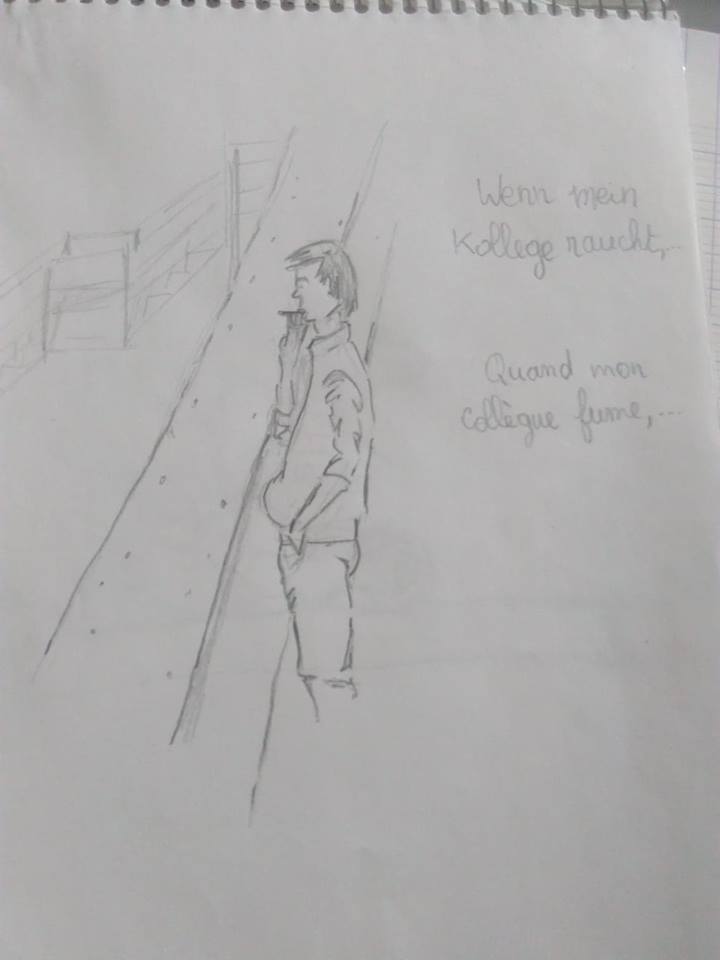 Wenn mein
Kollege raucht,...
Quand mon
collègue fume,...